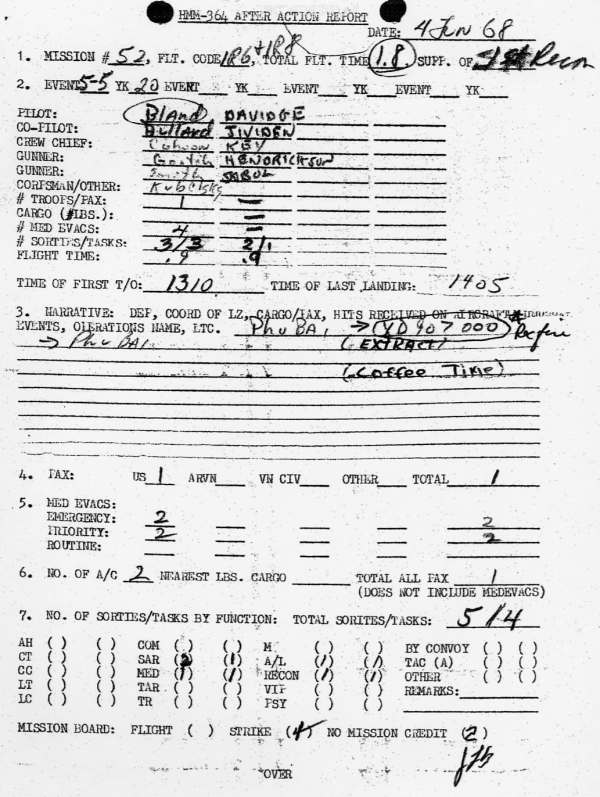 HMM-364 AFTER ACTION REPORT
DATE: 4 JUN 68
1. MISSION # 52, FLT. CODE 1R6 + 1R8, TOTAL FLT. TIME 1.8 SUPP. OF 1st Recon
2. EVENT 5-5 YK 20 EVERT YK EVENT YK EVENT YK
PILOT: Bland DAVIDGE
CO-PILOT: Bullard JIVIDEN
CREW CHIEF: KEY
GUNNER: HENDRICKSON
GUNNER: Smith SABOL
CORPSMAN/OTHER: Kubelsky
# TROOPS/PAX: 1 —
CARGO (#LBS.): —
# MED EVACS: 4 —
# SORTIES/TASKS: 3/3 2/1
FLIGHT TIME: .9 .9
TIME OF FIRST T/O: 1310 TIME OF LAST LANDING: 1405
3. NARRATIVE: DEP, COORD OF LZ, CARGO/PAX, HITS RECEIVED ON AIRCRAFT
EVENTS, OPERATIONS NAME, ETC. Phu BAI → (YD 907 000)
→ Phu BAI (EXTRACT)
(Coffee Time)
4. PAX: US 1 ARVN VN CIV OTHER TOTAL 1
5. MED EVACS:
EMERGENCY: 2 2
PRIORITY: 2 2
ROUTINE:
6. NO. OF A/C 2 NEAREST LBS. CARGO TOTAL ALL PAX 1
(DOES NOT INCLUDE MEDEVACS)
7. NO. OF SORTIES/TASKS BY FUNCTION: TOTAL SORITES/TASKS: 5/4
AH ( ) ( ) COM ( ) ( ) M ( ) ( ) BY CONVOY ( ) ( )
CT ( ) ( ) SAR (2) (1) A/L (1) (1) TAC (A) ( ) ( )
CC ( ) ( ) MED (1) (1) RECON (1) (1) OTHER ( ) ( )
LT ( ) ( ) TAR ( ) ( ) VIP ( ) ( ) REMARKS:
LC ( ) ( ) TR ( ) ( ) PSY ( ) ( )
MISSION BOARD: FLIGHT ( ) STRIKE (4) NO MISSION CREDIT (2)
OVER